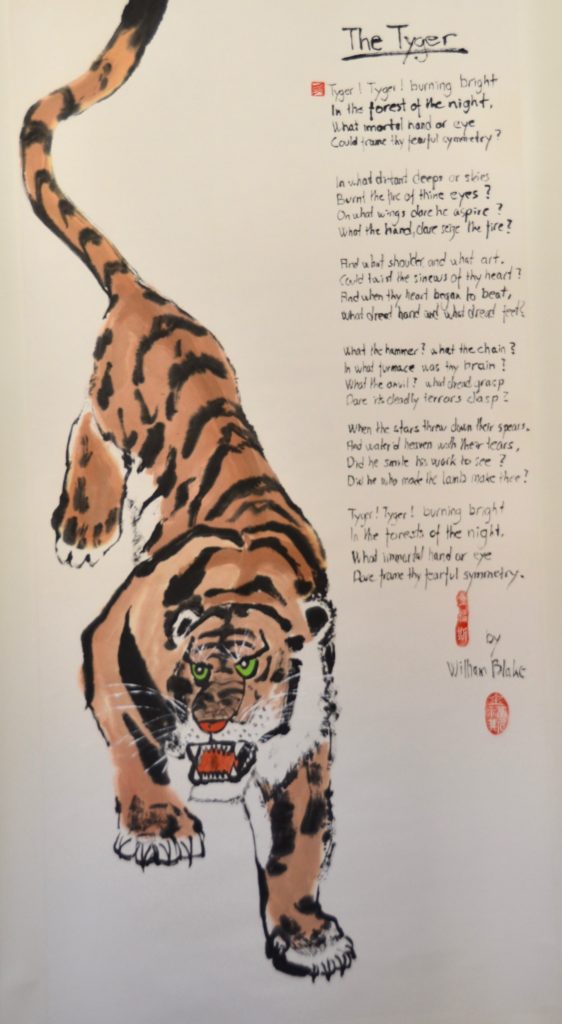 The Tyger
Tyger! Tyger! burning bright
In the forest of the night,
What imortal hand or eye
Could frame thy fearful symmetry?
In what distant deeps or skies
Burnt the fire of thine eyes?
On what wings dare he aspire?
What the hand, dare seize the fire?
And what shoulder, and what art.
Could twist the sinews of thy heart?
And when thy heart began to beat,
What dread hand and what dread feet?
What the hammer? what the chain?
In what furnace was thy brain?
What the anvil? what dread grasp
Dare its deadly terrors clasp?
When the stars threw down their spears.
And water'd heaven with their tears,
Did he smile his work to see?
Did he who made the lamb make thee?
Tyger! Tyger! burning bright
In the forests of the night,
What immortal hand or eye
Dare frame thy fearful symmetry.
by
William Blake